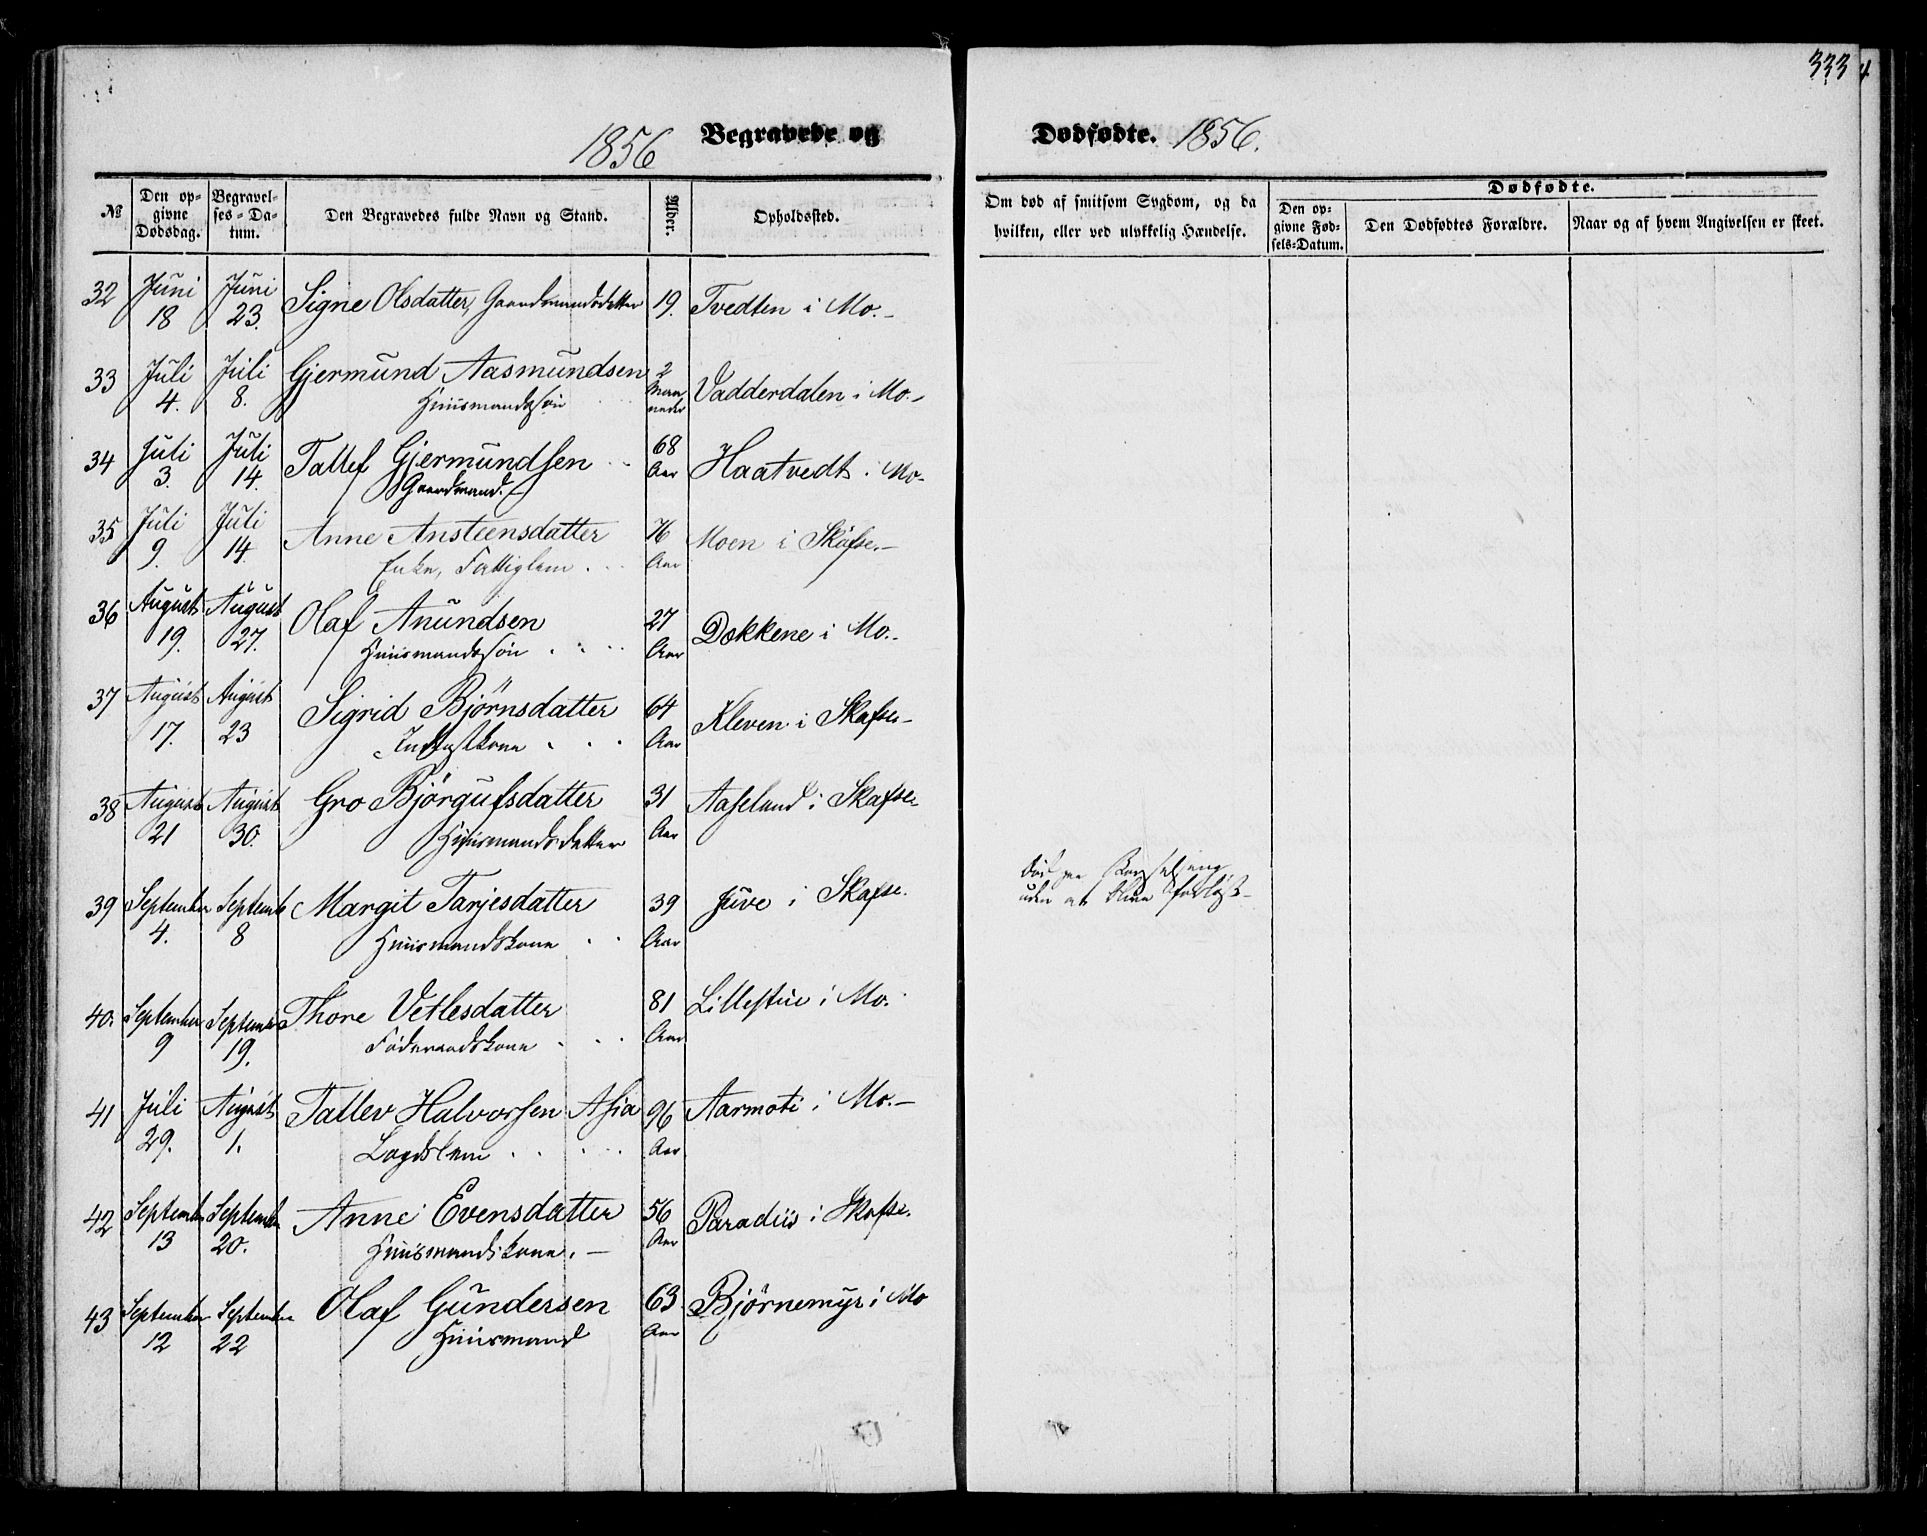 333 4
1856 Begravede og Dødfødte. 1856.
№ Den opgivne Dødsdag. Begravelses-Datum. Den Begravedes fulde Navn og Stand. Alder. Opholdssted. Om død af smitsom Sygdom, og da hvilken, eller ved ulykkelig Hændelse. Dødfødte. Den opgivne Fødsels-Datum. Den Dødfødtes Forældre. Naar og af hvem Angivelsen er skeet.
32 Juni 18 Juni 23. Signe Olsdatter, Gaardmandsdatter 19. Tvedten i Mo.-
33 Juli 4. Juli 8. Gjermund Aasmundsen 2 Maaneder Vadderdalen i Mo.-
Huusmandssøn
34 Juli 3. Juli 14. Tallef Gjermundsen 68 Aar Haatvedt i Mo-
Gaardmand.-
35 Juli 9. Juli 14. Anne Ansteensdatter 76 Aar Moen i Skafse.-
Enke, Fattiglem
36 August 19. August 27. Olaf Anundsen 27 Aar Dokkene i Mo.-
Huusmandssøn
37 August 17. August 23 Sigrid Bjørnsdatter 64 Aar Kleven i Skafse-
38 August 21 August 30. Gro Bjørgufsdatter 31 Aar Aaseland i Skafse
Huusmandsdatter
39 September 4. Septemb 8 Margit Tarjesdatter 39 Aar Juve i Skafse. Død paa Barselseng
Huusmandskone uden at blive forløst-
40. September 9 September 19. Thore Vetlesdatter 81 Aar Lillestue i Mo.
Føderaadskone
41 Juli 29. August 1. Tallev Halvorsen Asia 96 Aar Aarmote i Mo.-
Lægdslem
42 September 13 September 20. Anne Evensdatter 56 Aar Paradiis i Skafse.
Huusmandskone.-
43 September 12 September 22 Olaf Gundersen 63 Aar Bjørnemyr i Mo
Huusmand